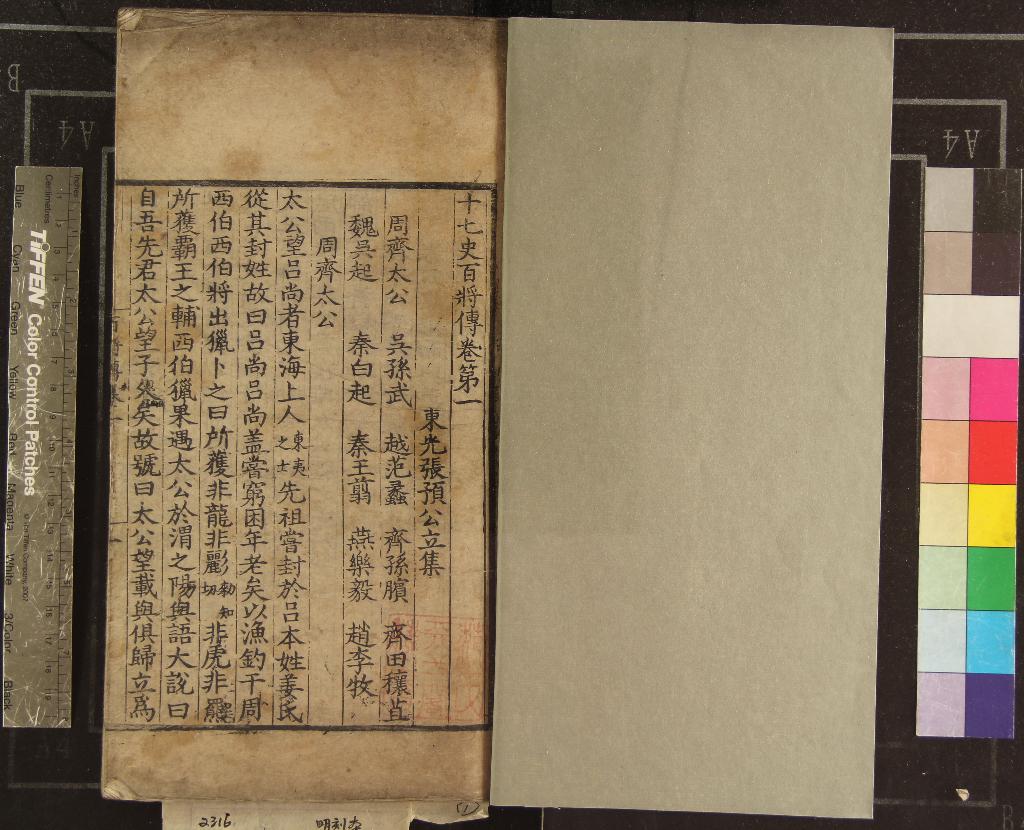 十七史百將傳卷第一
東光張預公立集
周齊太公 吳孫武 越范蠡 齊孫臏 齊田穰苴
魏吳起 秦白起 秦王翦 燕樂毅 趙李牧
周齊太公
太公望呂尚者東海上人東夷之士先祖嘗封於呂本姓姜氏
從其封姓故曰呂尚呂尚蓋嘗窮困年老矣以漁釣干周
西伯西伯將出獵卜之曰所獲非龍非彲勑知切非虎非羆
所獲霸王之輔西伯獵果遇太公於渭之陽與語大說曰
自吾先君太公望子久矣故號曰太公望載與俱歸立為
B
A4
A4
Inches
Centimetres
TIFFEN Color Control Patches
Blue
Cyan
Green
Yellow
Red
Magenta
White
3/Color
Black
2316
明刻本
(1)